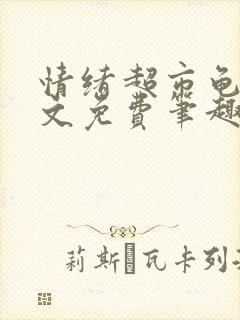 情绪超市龟
文免费笔趣
莉斯·瓦卡列